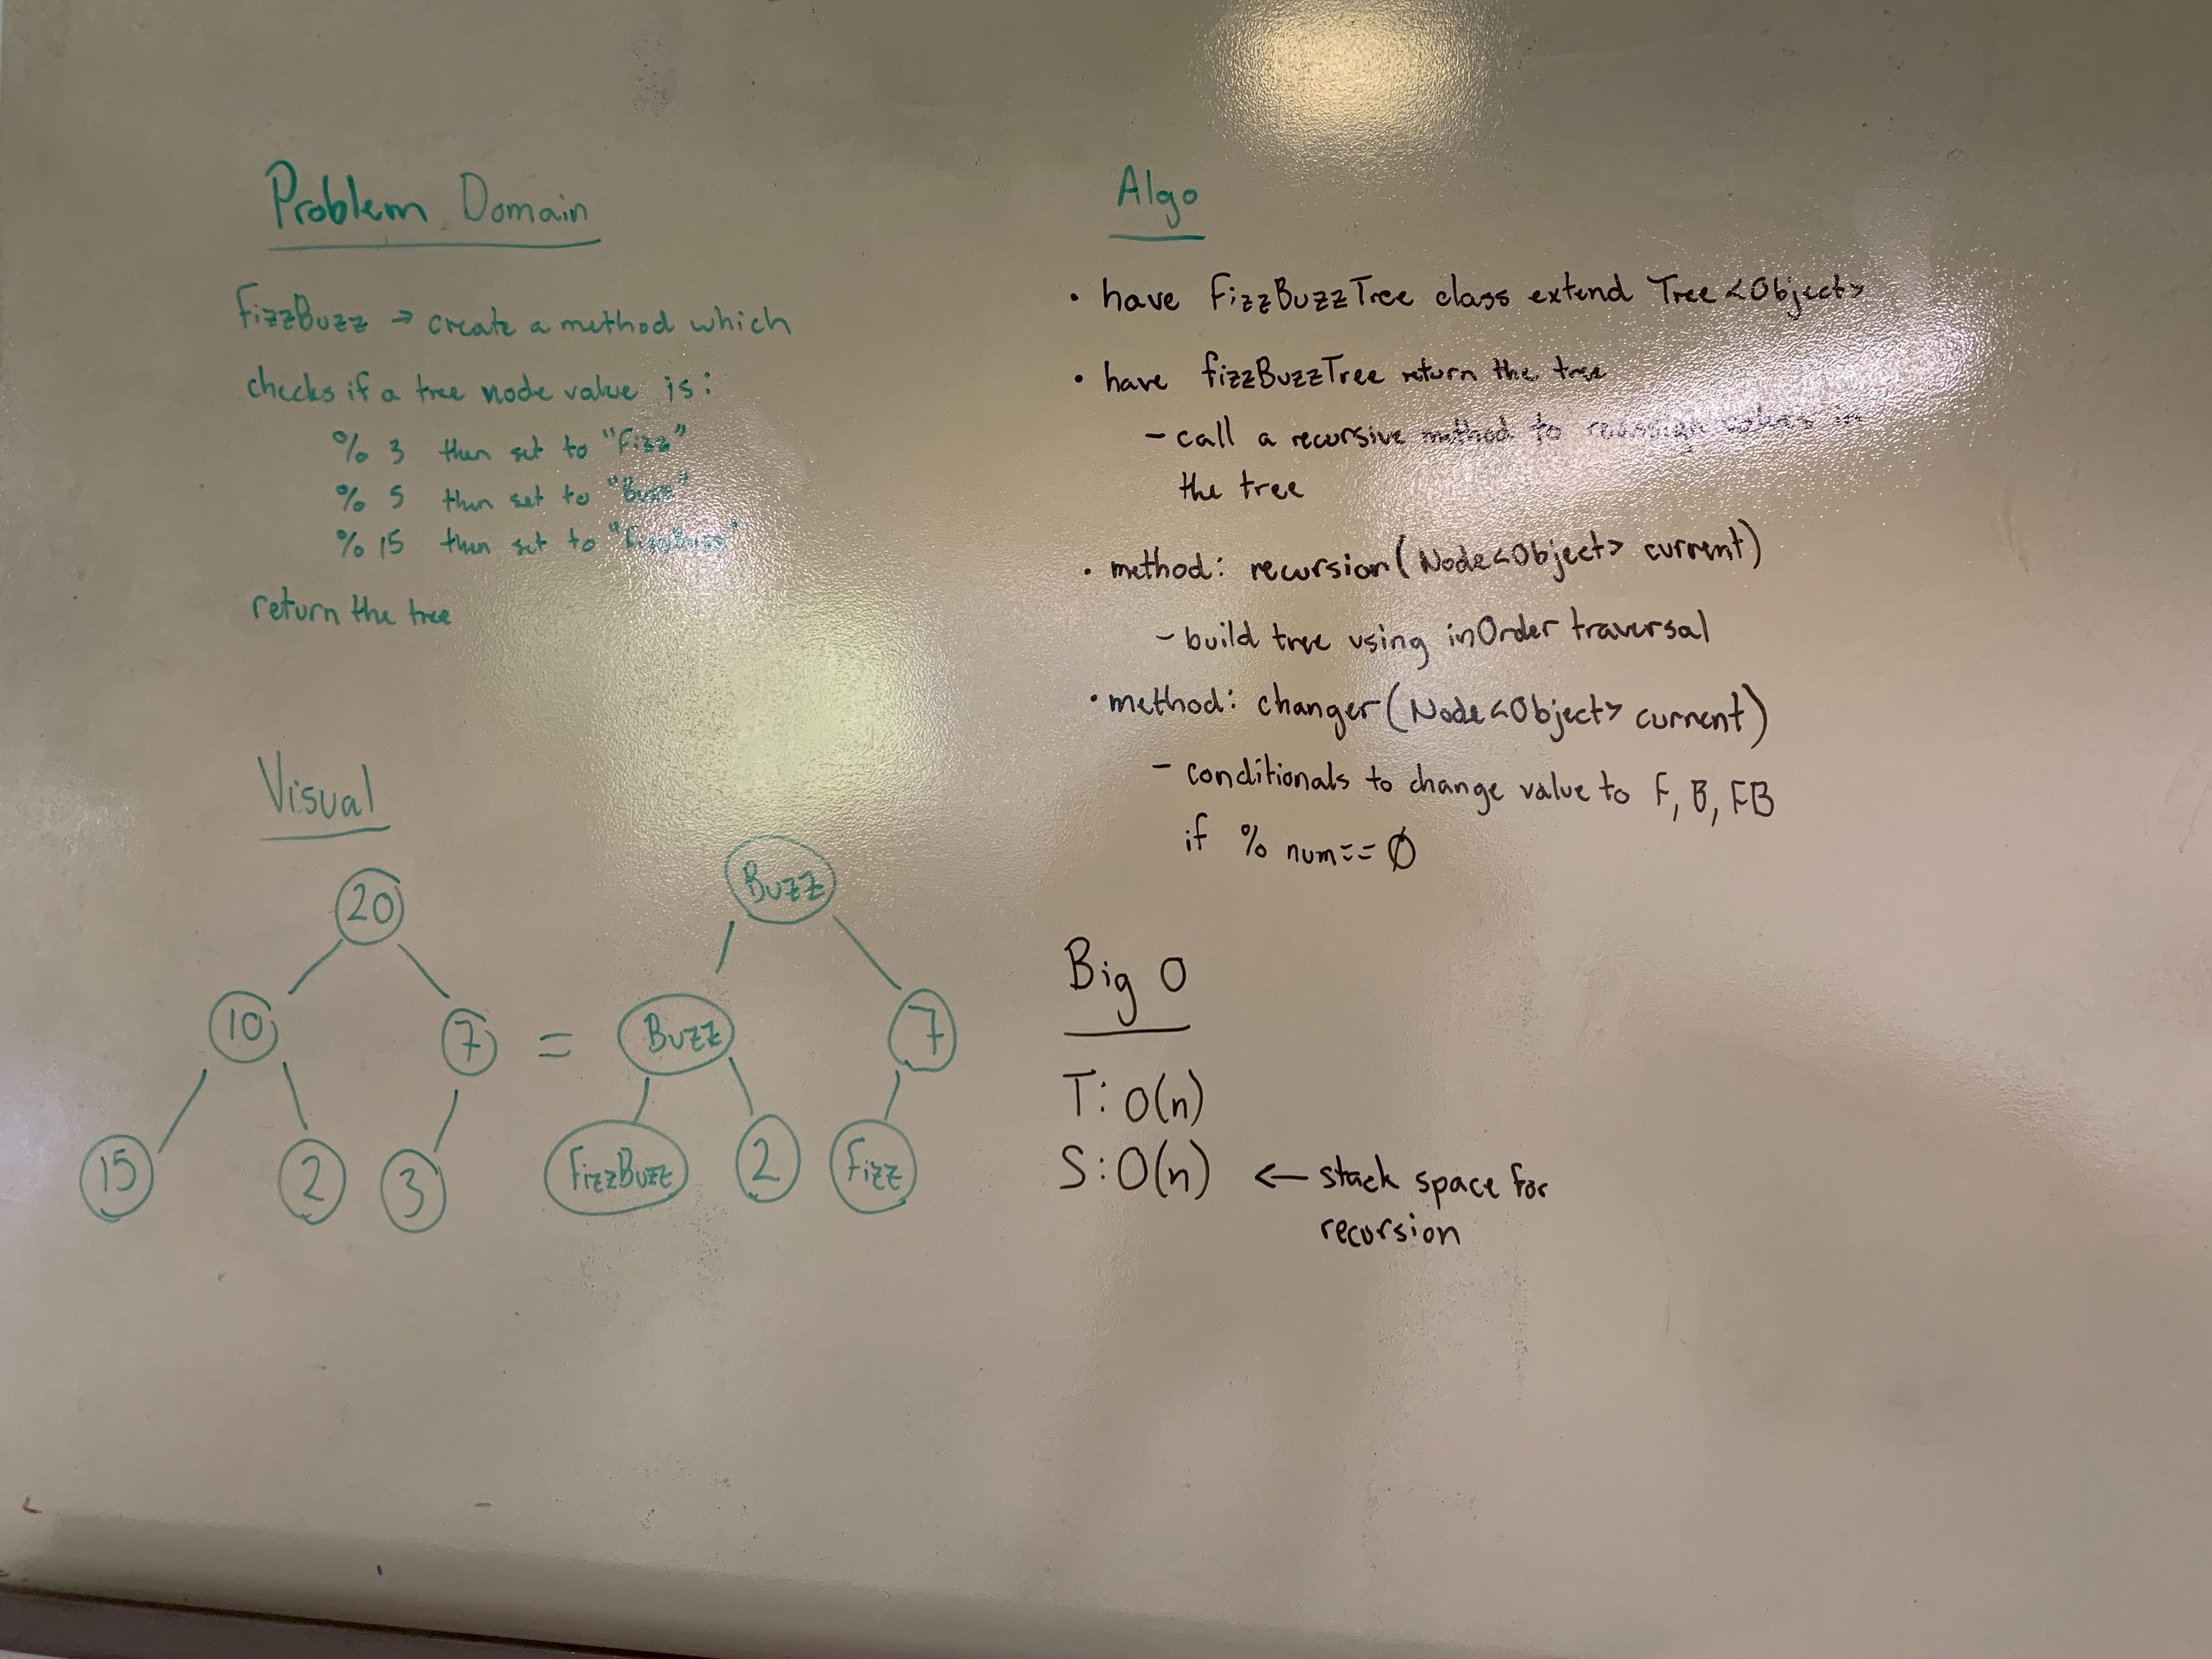 Problem Domain
FizzBuzz → create a method which
checks if a tree node value is:
% 3 then set to "Fizz"
% 5 then set to "Buzz"
% 15 then set to "FizzBuzz"
return the tree
Visual
20
10
7
15
2
3
=
Buzz
Buzz
7
FizzBuzz
2
Fizz
Algo
• have FizzBuzzTree class extend Tree<Object>
• have fizzBuzzTree return the tree
- call a recursive method to reassign values in
the tree
• method: recursion(Node<Object> current)
- build tree using inOrder traversal
• method: changer(Node<Object> current)
- conditionals to change value to F, B, FB
if % num == Ø
Big O
T: O(n)
S: O(n) ← stack space for
recursion